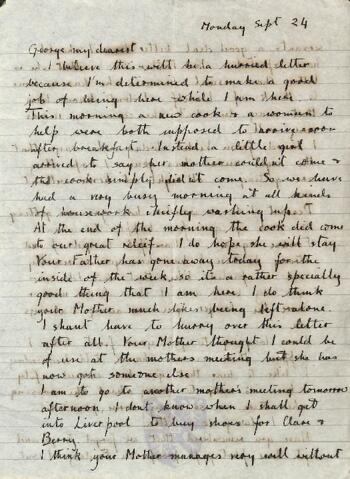 Monday Sept 24
George my dearest
I believe this will be a hurried letter
because I'm determined to make a good
job of being here while I am here.
This morning a new cook & a woman to
help were both supposed to arrive soon
after breakfast. Instead a little girl
arrived to say her mother couldn't come &
the cook simply didn't come. So we have
had a very busy morning at all kinds
of housework chiefly washing up.
At the end of the morning the cook did come
to our great relief. I do hope she will stay
Your Father has gone away today for the
inside of the week so it's a rather specially
good thing that I am here. I do think
your Mother much being left alone.
I shant have to hurry over this letter
after all. Your Mother thought I could be
of use at the mothers meeting but she has
now got someone else
I am to go to another mother's meeting tomorrow
afternoon. I dont know when I shall get
into Liverpool to buy shoes for Clare &
Berry.
I think your Mother manages very well without